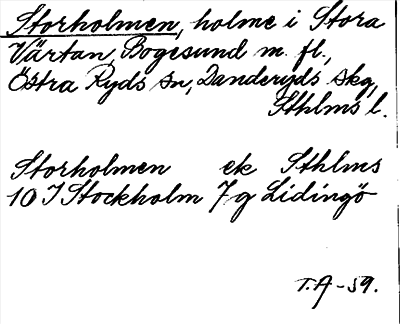 Storholmen, holme i Stora
Värtan, Bogesund m. fl.,
Östra Ryds sn, Danderyds skg,
Sthlms l.
Storholmen ek Sthlms
10 I Stockholm 7g Lidingö
T.A-59.